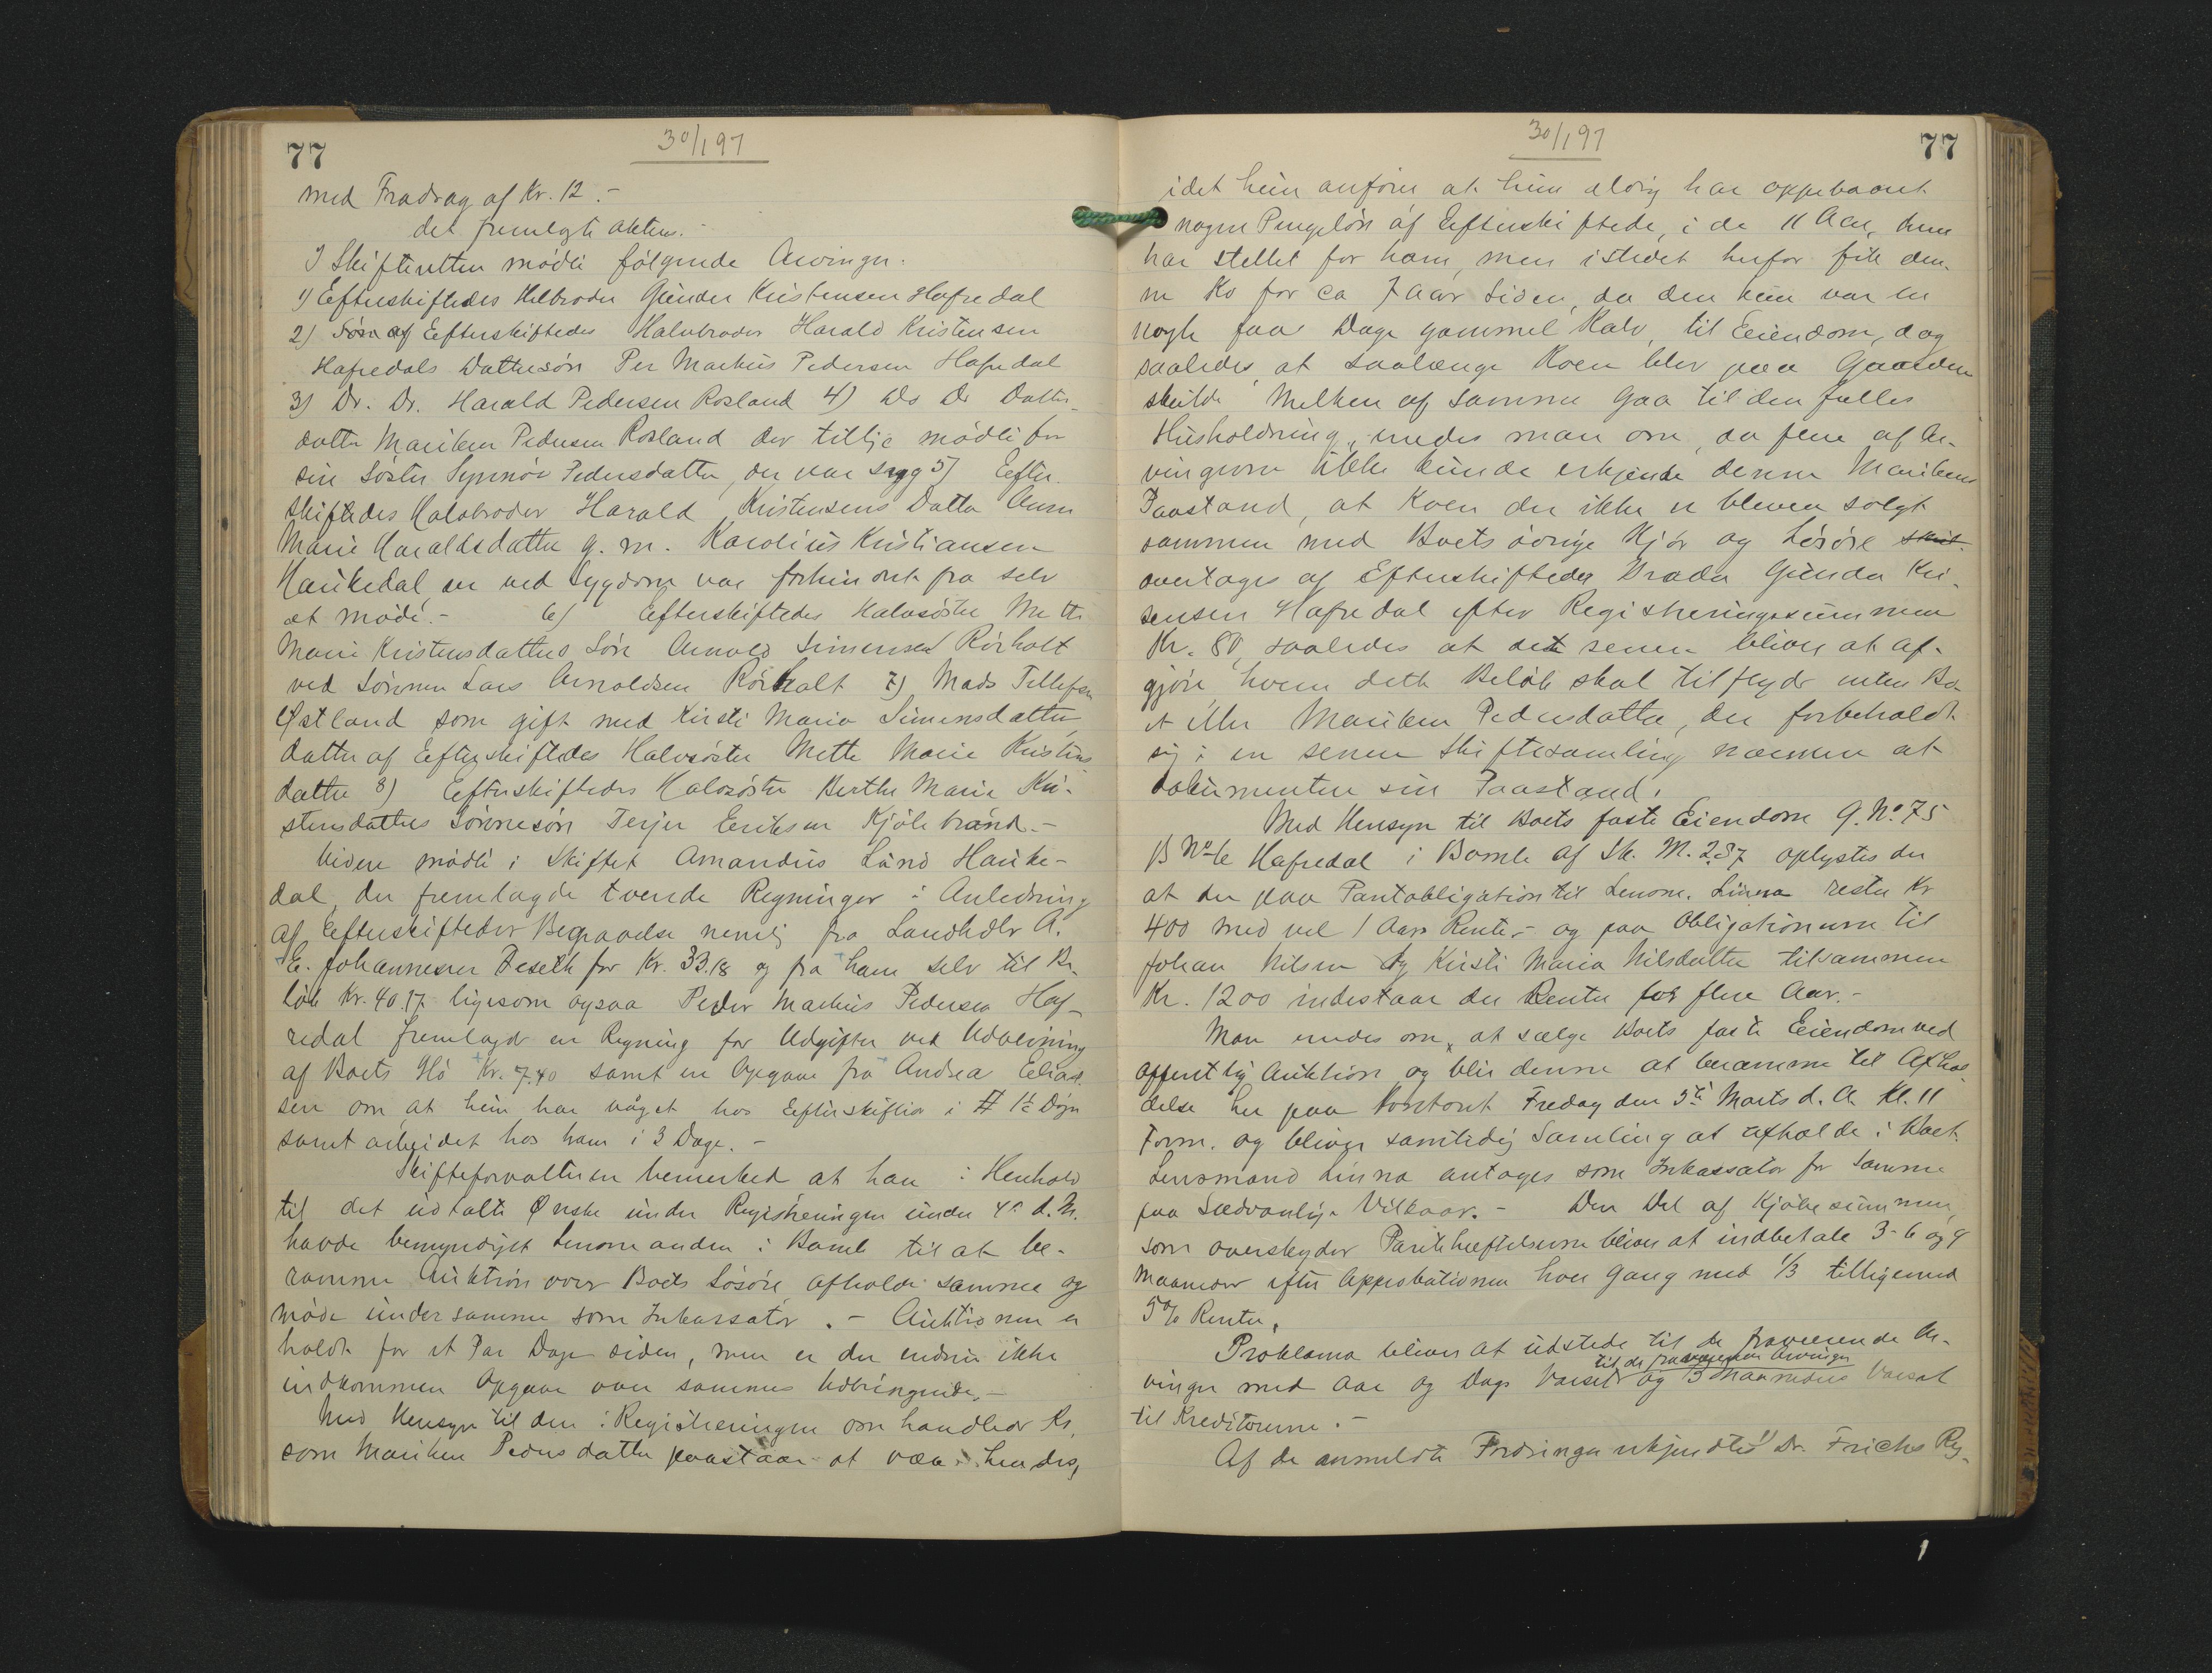 77
30/1 97
med Fradrag af Kr. 12.-
det fremlagte aktens.-
I Skifteretten mødte følgende Arvinger.
1) Efterskiftedes Helbroder Gunder Kristensen Hafredal
2) Søn af Efterskiftedes Halvbroder Harald Kristensen
Hafredals Dattersøn Per Markus Pedersen Hafredal
3) Do. Do. Harald Pedersen Rosland 4) Do Do Datter-
datter Mariken Pedersen Rosland der tillige mødte for
sin Søster Synnøv Pedersdatter, der var syg 5) Efter-
skiftedes Halvbroder Harald Kristensens Datter Anne
Marie Haraldsdatter g. m. Karolius Kristiansen
Haukedal der ved Sygdom var forhindret fra selv
at møde.- 6) Efterskiftedes Halvsøster Mette
Marie Kristensdatters Søn Arnold Simensen Rørholt
ved Sønnen Lars Arnoldsen Rørholt 7) Mads Tellefsen
Østland som gift med Kirsti Maria Simensdatter
datter af Efterskiftedes Halvsøster Mette Marie Kristens
datter 8) Efterskiftedes Halvsøster Berthe Marie Kri-
stensdatters Sønnesøn Terjer Eriksen Kjølebrand.-
Videre mødte i Skiftet Amandus Lund Hauke-
dal, der fremlagde tvende Regninger i Anledning
af Efterskiftedes Begravelse nemlig fra Landhdlr A.
E. Johannesen for Kr. 33.18 og fra ham selv til Be-
løb Kr. 40.17 ligesom ogsaa Peder Markus Pedersen Haf-
redal fremlagde en Regning for Udgifter ved Udveining
af Boets Hø Kr. 7.40 samt en Opgave fra Andrea Elias-
sen om at hun har våget hos Efterskiftede i 12 Døgn
samt arbeidet hos ham i 3 Dage.-
Skifteforvalteren bemerked at han i Henhold
til det udtalte Ønske under Registreringen under 4de d. M.
havde bemyndiget Lensmanden i Bamle til at be-
ramme Auktion over Boets Løsøre, afholde samme og
møde under samme som Inkassator.- Auktionen er
holdt for et Par Dage siden, men er der endnu ikke
indkommen Opgave over sammes Udbringende.-
Med Hensyn til den i Registreringen om handlede Ko,
som Mariken Pedersdatter paastaar at være hendes,
77
30/1 97
idet hun anfører at hun aldrig har oppebaaret
nogen Pengeløn af Efterskiftede, i de 11 Aar, hun
har stellet for ham, men istedet herfor fik den-
ne Ko for ca 7 Aar siden, da den kun var en
nogle faa Dage gammel Kalv, til Eiendom, dog
saaledes, at saalænge Koen blev paa Gaarden
skulde Melken af samme gaa til den fælles
Husholdning, enedes man om, da flere af Ar-
vingerne ikke kunde erkjende denne Marikens
Paastand, at Koen der ikke er bleven solgt
sammen med Boets øvrige Kjør og Løsøre
overtages af Efterskiftedes Broder Gunder Kri-
stensen Hafredal efter Registreringssummen
Kr. 80, saaledes at det senere bliver at af-
gjøre, hvem dette Beløb skal tilflyde enten Bo-
et eller Mariken Pedersdatter, der forbeholdt
sig i en senere Skiftesamling nærmere at
dokumentere sin Paastand.
Med Hensyn til Boets faste Eiendom G. No. 75
B No 6 Hafredal i Bamle af Sk. M. 2.87 oplystes der
at der paa Pantobligation til Lensm. Linna rester Kr
400 med vel 1 Aars Rente,- og paa Obligationerne til
Johan Nilsen og Kirsti Maria Nilsdatter tilsammen
Kr. 1200 indestaar der Renter for flere Aar.-
Man enedes om, at sælge Boets faste Eiendom ved
offentlig Auktion og blir denne at beramme til Afhol-
delse her paa Kontoret Fredag den 5te Marts d. A. Kl. 11
Form. og bliver samtidig Samling at afholde i Boet.
Lensmand Linna antages som Inkassator for samme
paa Sædvanlige Vilkaar.- Den Del af Kjøbesummen,
som overskyder Panteheftelserne bliver at indbetale 3-6 og 9
Maaneder efter Approbationen hver Gang med 1/3 tilligemed
5% Renter.
Proklama bliver at udstede til de fraværende Ar-
til de fraværende Arvinger
vinger med Aar og Dags Varsel og 3 Maaneders Varsel
til Kreditorerne.-
Af de anmeldte Fordringer erkjendtes 1) Dr. Frichs Reg-